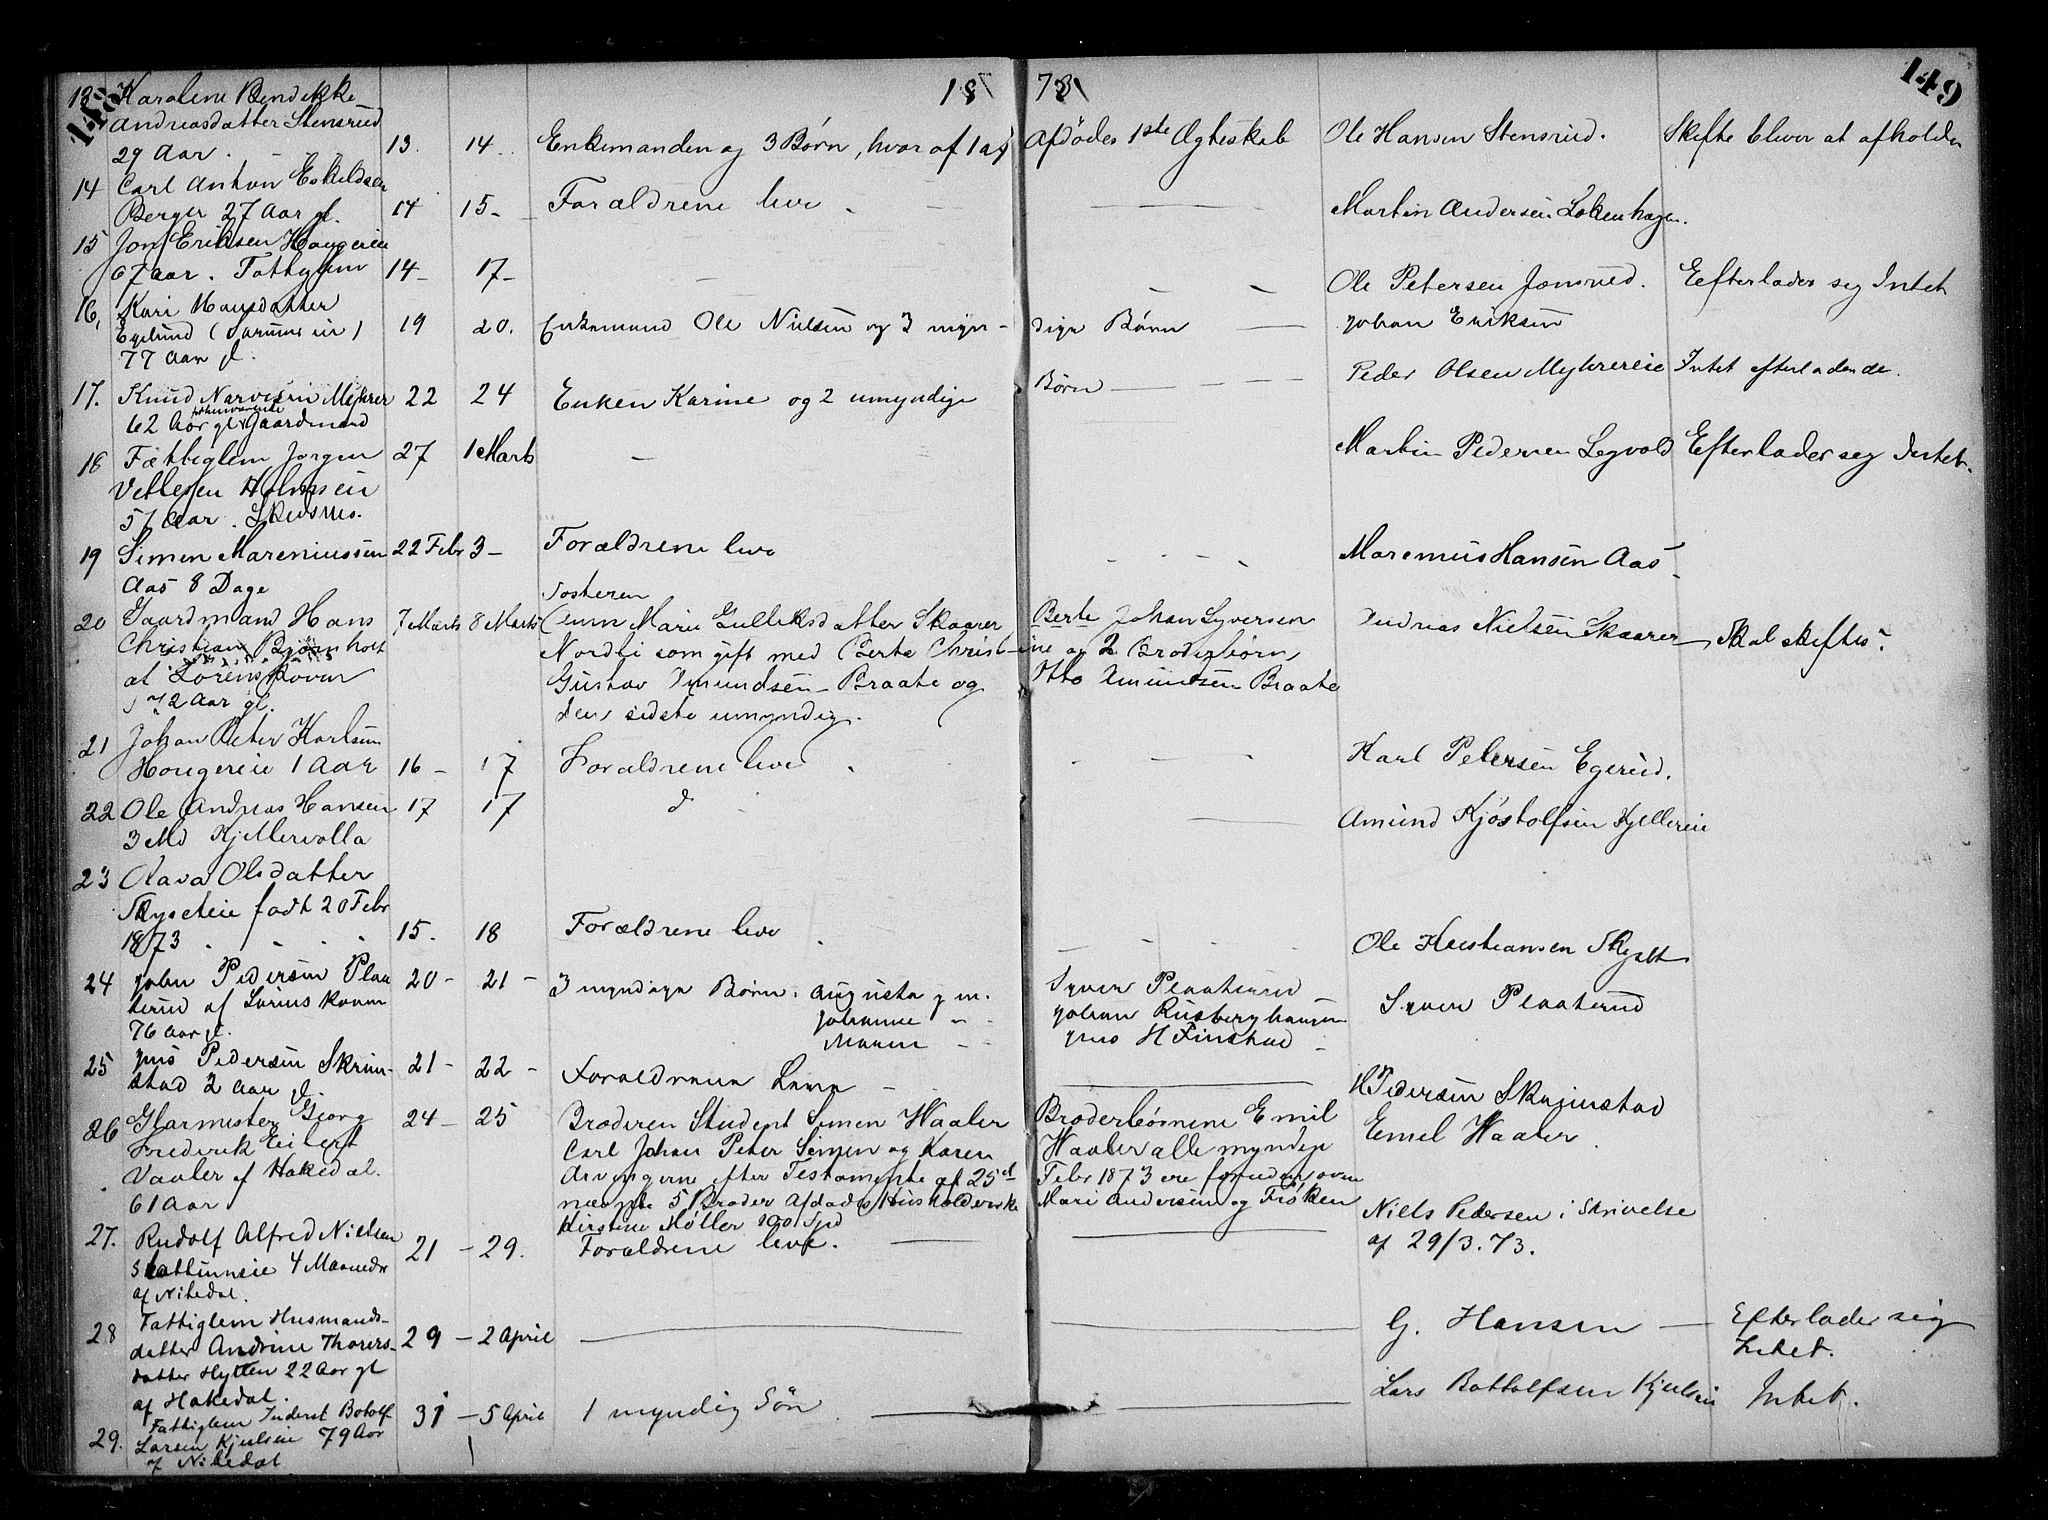 148 18 73 149
13 Karoline Bendikke
Andreasdatter Stensrud
29 Aar. 13. 14. Enkemanden og 3 Børn, hvor af 1 af Afdödes 1ste Ægteskab Ole Hansen Stensrud. Skifte bliver at afholde
14 Carl Anton Eskildsen
Berger 27 Aar gl. 14 15 Forældrene leve Martin Andersen Lökenhagen.
15 Jon Eriksen Haugereie
67 Aar. Fattiglem 14 17 Ole Petersen Jonsrud. Eefterlader sig Intet
16, Kari Hansdatter
Egelund
77 Aar gl. 19 20. Enkemand Ole Nielsen og 3 myn- dige Børn Johan Eriksen
17. Knud Narvesen Myhrer 22 24 Enken Karine og 2 umyndige Børn Peder Olsen Myhrereie Intet efterladende.
62 Aar gl. Gaardmand
18 Fattiglem Jørgen 27 1 Marts Martin Pedersen Legvold Efterlader sig Intet.
Vetlesen Holmsen
57 Aar. Skedsmo.
19 Simen Mareniussen 22 Febr 3 Forældrene leve Marenius Hansen Aas
Aas 8 Dage
20 Gaardmand Hans 7 Marts 8 Marts Søsteren
Anne Marie Gulliksdatter Skaarer Berte Johan Syversen Andreas Nielsen Skaarer Skal skiftes.
Christian Bjørnholt Nordli som gift med Berte Christ- ine og 2 Broderbörn,
af Lørenskoven Gustav Amundsen Braate og Otto Amundsen Braate
72 Aar gl. den sidste umyndig.
21 Johan Peter Karlsen
Haugereie 1 Aar 16 17 Forældrene leve Karl Petersen Egerud.
22 Ole Andreas Hansen 17 17 d Amund Kjöstolfsen Kjellereie
3 Md Kjellervolla
23 Olava Olsdatter
Skyseteie født 20 Febr
1873 15. 18 Forældrene leve Ole Kristiansen Skysett
24 John Pedersen Plaa 20 21 3 myndige Børn: Augusta g m. Syver Plaaterud Syver Plaaterud
terud af Lørenskoven Johanne Johan Rusberghaugen
76 Aar gl. Maren Jens H Finstad
25 Jens Pedersen Skrim- 21 22 Forældrene Leve H Pedersen Skrimstad
stad 2 Aar gl.
26 Glarmester Georg 24 25 Broderen Student Simen Waaler Broderbörnene Emil Emil Waaler
Frederik Eilert Carl Johan Peter Simen og Karen Waaler alle myndige
Vaaler af Hakedal. Arvingerne efter Testamente af 25de Febr 1873 ere foruden oven
61 Aar nævnte 5 Broder Afdødes Husholderske Mari Andersen og Frøken
Kirstine Møller 100 Spd
27. Rudolf Alfred Nielsen 21 29. Forældrene leve. Niels Pedersen i Skrivelse
Slattumseie 4 Maaneder af 29/3.73.
af Nitedal.
28 Fattiglem Husmands-
datter Andrine Thorers- 29 2 April G. Hansen Efterlader sig
datter Hytten 22 Aar gl Intet.
af Hakedal.
29. Fattiglem Inderst Botolf 31 5 April 1 myndig Sön Lars Bottolfsen Kjulsen Intet.
Larsen Kjulsen 79 Aar
af Nitedal